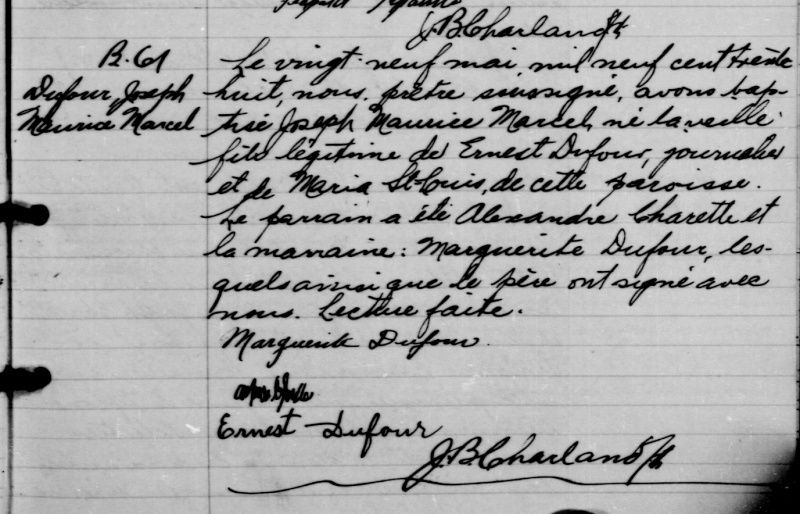 J.B. Charland
B. 61
Dufour, Joseph
Maurice Marcel
Le vingt-neuf mai, mil neuf cent trente
huit, nous, prêtre soussigné, avons bap-
tisé Joseph Maurice Marcel, né la veille
fils légitime de Ernest Dufour, journalier
et de Maria St-Louis, de cette paroisse.
Le parrain a été Alexandre Charette et
la marraine: Marguerite Dufour, les-
quels ainsi que le père ont signé avec
nous. Lecture faite.
Marguerite Dufour
Ernest Dufour
J.B. Charland